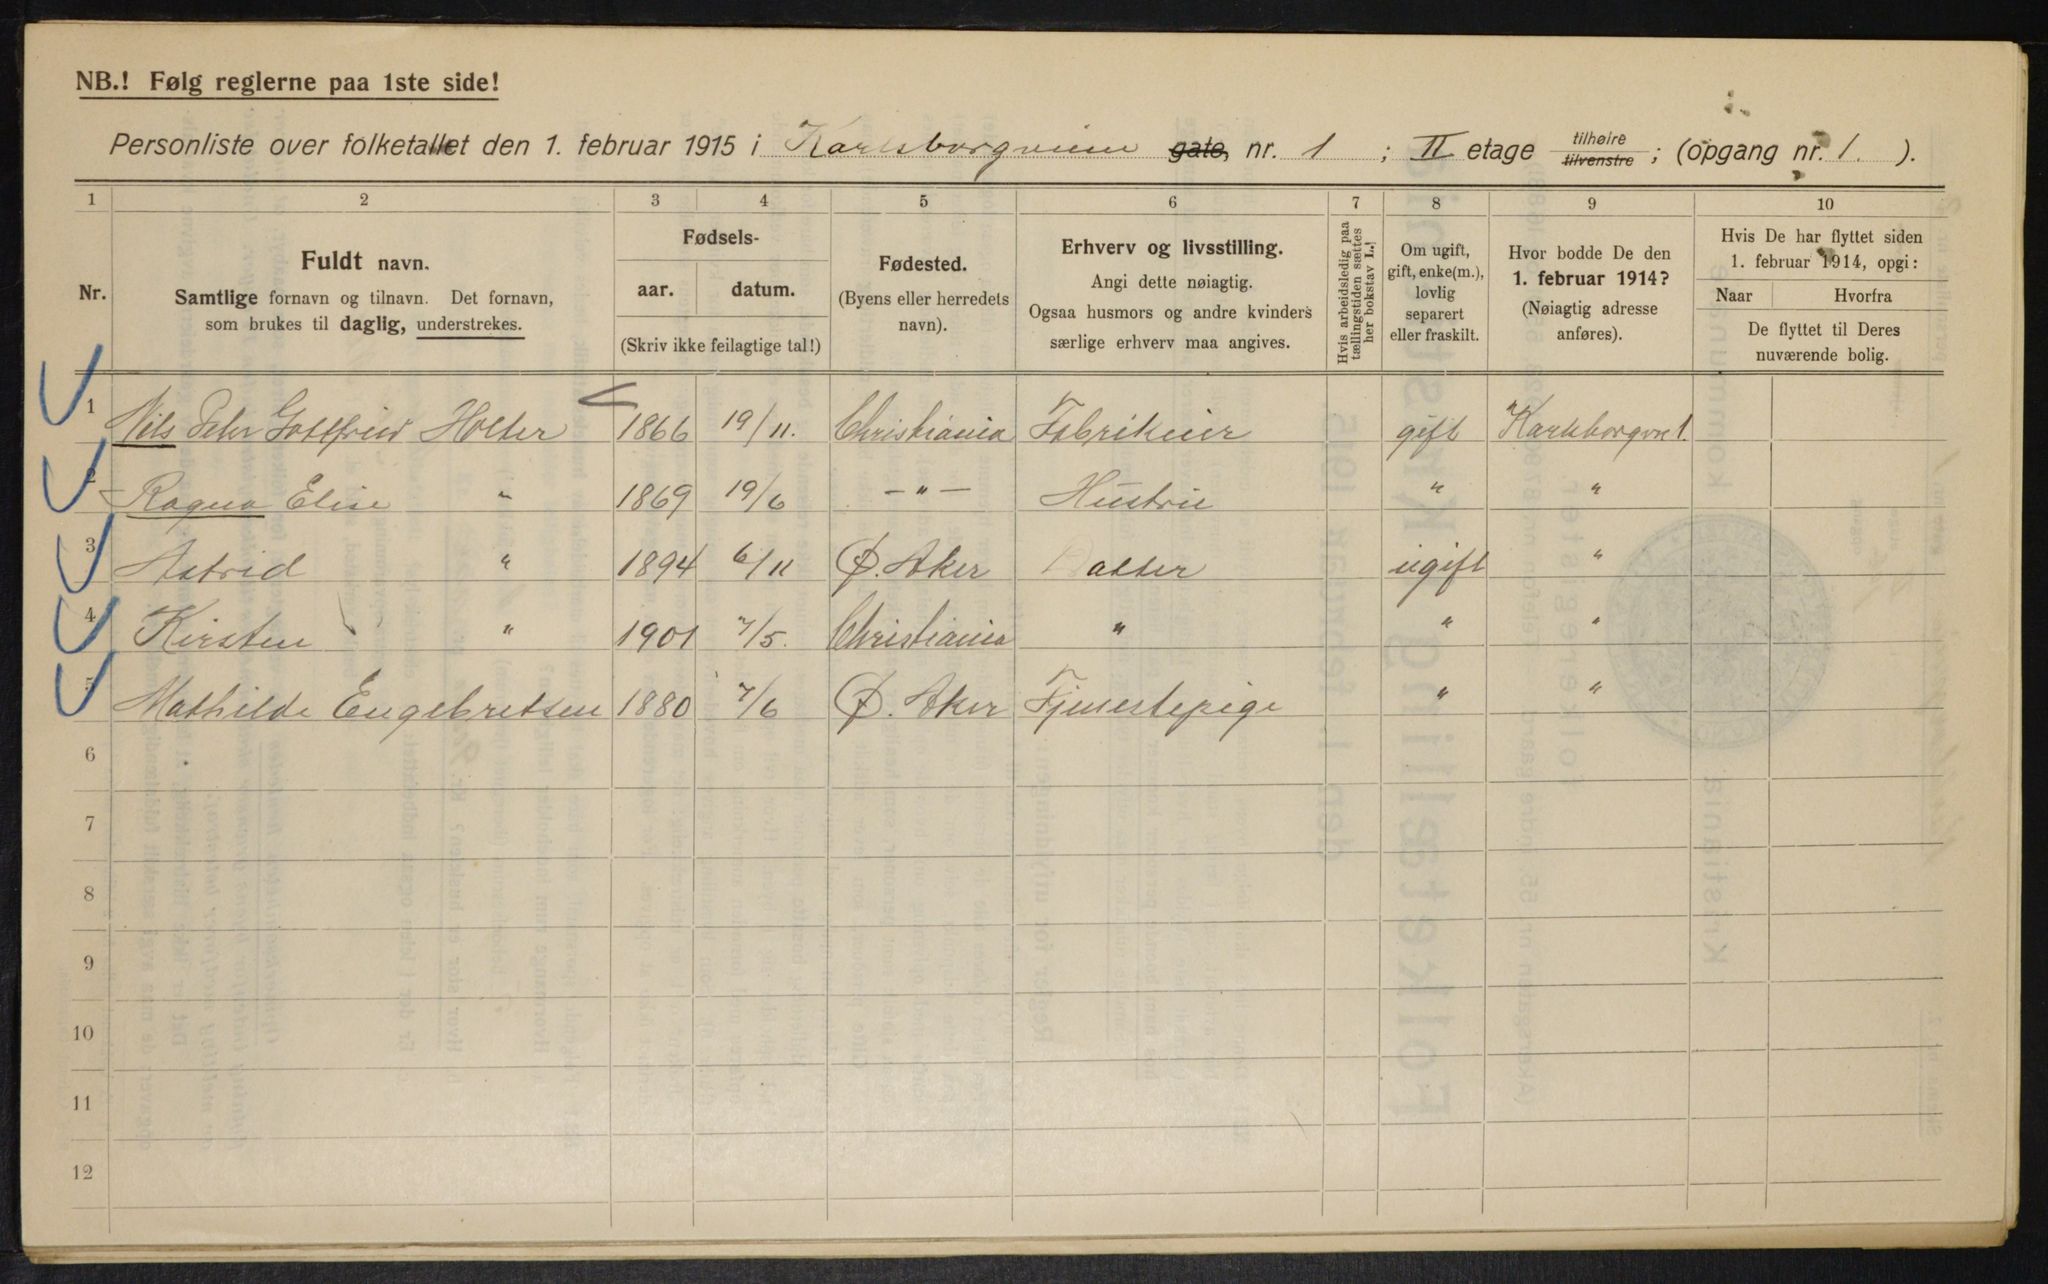 NB.! Følg reglerne paa 1ste side!
Personliste over folketallet den 1. februar 1915 i Karlsborgveien gate, nr. 1 ; II etage tilhøire tilvenstre ; (opgang nr. 1. ).
1 2 3 4 5 6 7 8 9 10
Nr.
Fuldt navn.
Samtlige fornavn og tilnavn. Det fornavn,
som brukes til daglig, understrekes.
Fødsels-
aar. datum.
(Skriv ikke feilagtige tal!)
Fødested.
(Byens eller herredets
navn).
Erhverv og livsstilling.
Angi dette nøiagtig.
Ogsaa husmors og andre kvinders
særlige erhverv maa angives.
Hvis arbeidsledig paa
tællingstiden sættes
her bokstav L.!
Om ugift,
gift, enke(m.),
lovlig
separert
eller fraskilt.
Hvor bodde De den
1. februar 1914?
(Nøiagtig adresse
anføres).
Hvis De har flyttet siden
1. februar 1914, opgi:
Naar Hvorfra
De flyttet til Deres
nuværende bolig.
1 Nils Peter Gottfried Holter 1866 19/11. Christiania Fabrikeier gift Karlsborgve 1.
2 Ragna Elise " 1869 19/6 — " — Hustru " "
3 Astrid " 1894 6/11 Ø. Aker Datter ugift "
4 Kirsten " 1901 7/5. Christiania " " "
5 Mathilde Engebretsen 1880 7/6 Ø. Aker Tjenestepige " "
6
7
8
9
10
11
12